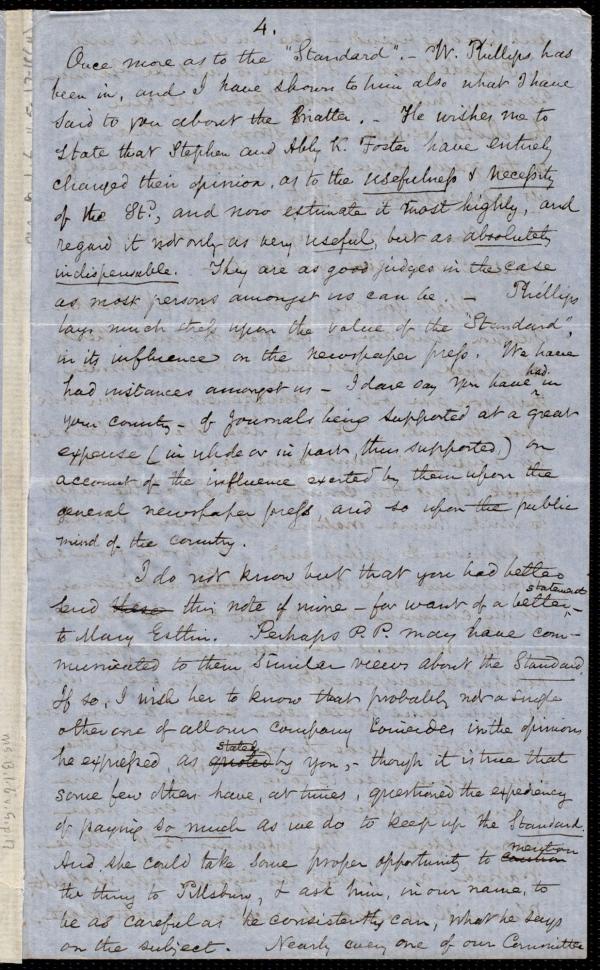 4.
Once more as to the "Standard". - W. Phillips has
been in, and I have shown to him also what I have
said to you about the matter. - He wishes me to
state that Stephen and Abby K. Foster have entirely
changed their opinion, as to the usefulness & necessity
of the St.d, and now estimate it most highly, and
regard it not only as very useful, but as absolutely
indispensable. They are as good judges in the case
as most persons amongst us can be. - Phillips
lays much stress upon the value of the "Standard",
in its influence on the newspaper press. We have
had instances amongst us - I dare say you have had in
your country - of Journals being supported at a great
expense (in whole or in part, thus supported,) on
account of the influence exerted by them upon the
general newspaper press, and so upon the public
mind of the country.
I do not know but that you had better
send these this note of mine - for want of a better statement -
to Mary Estlin. Perhaps P. P. may have com-
municated to them similar views about the Standard.
If so, I wish her to know that probably not a single
other one of all our company coincides in the opinions
he expressed as quoted stated by you, - though it is true that
some few others have, at times, questioned the expediency
of paying so much as we do to keep up the Standard.
And she could take some proper opportunity to caution mention
the thing to Pillsbury, & ask him, in our name, to
be as careful as he consistently can, what he says
on the subject. Nearly every one of our Committee